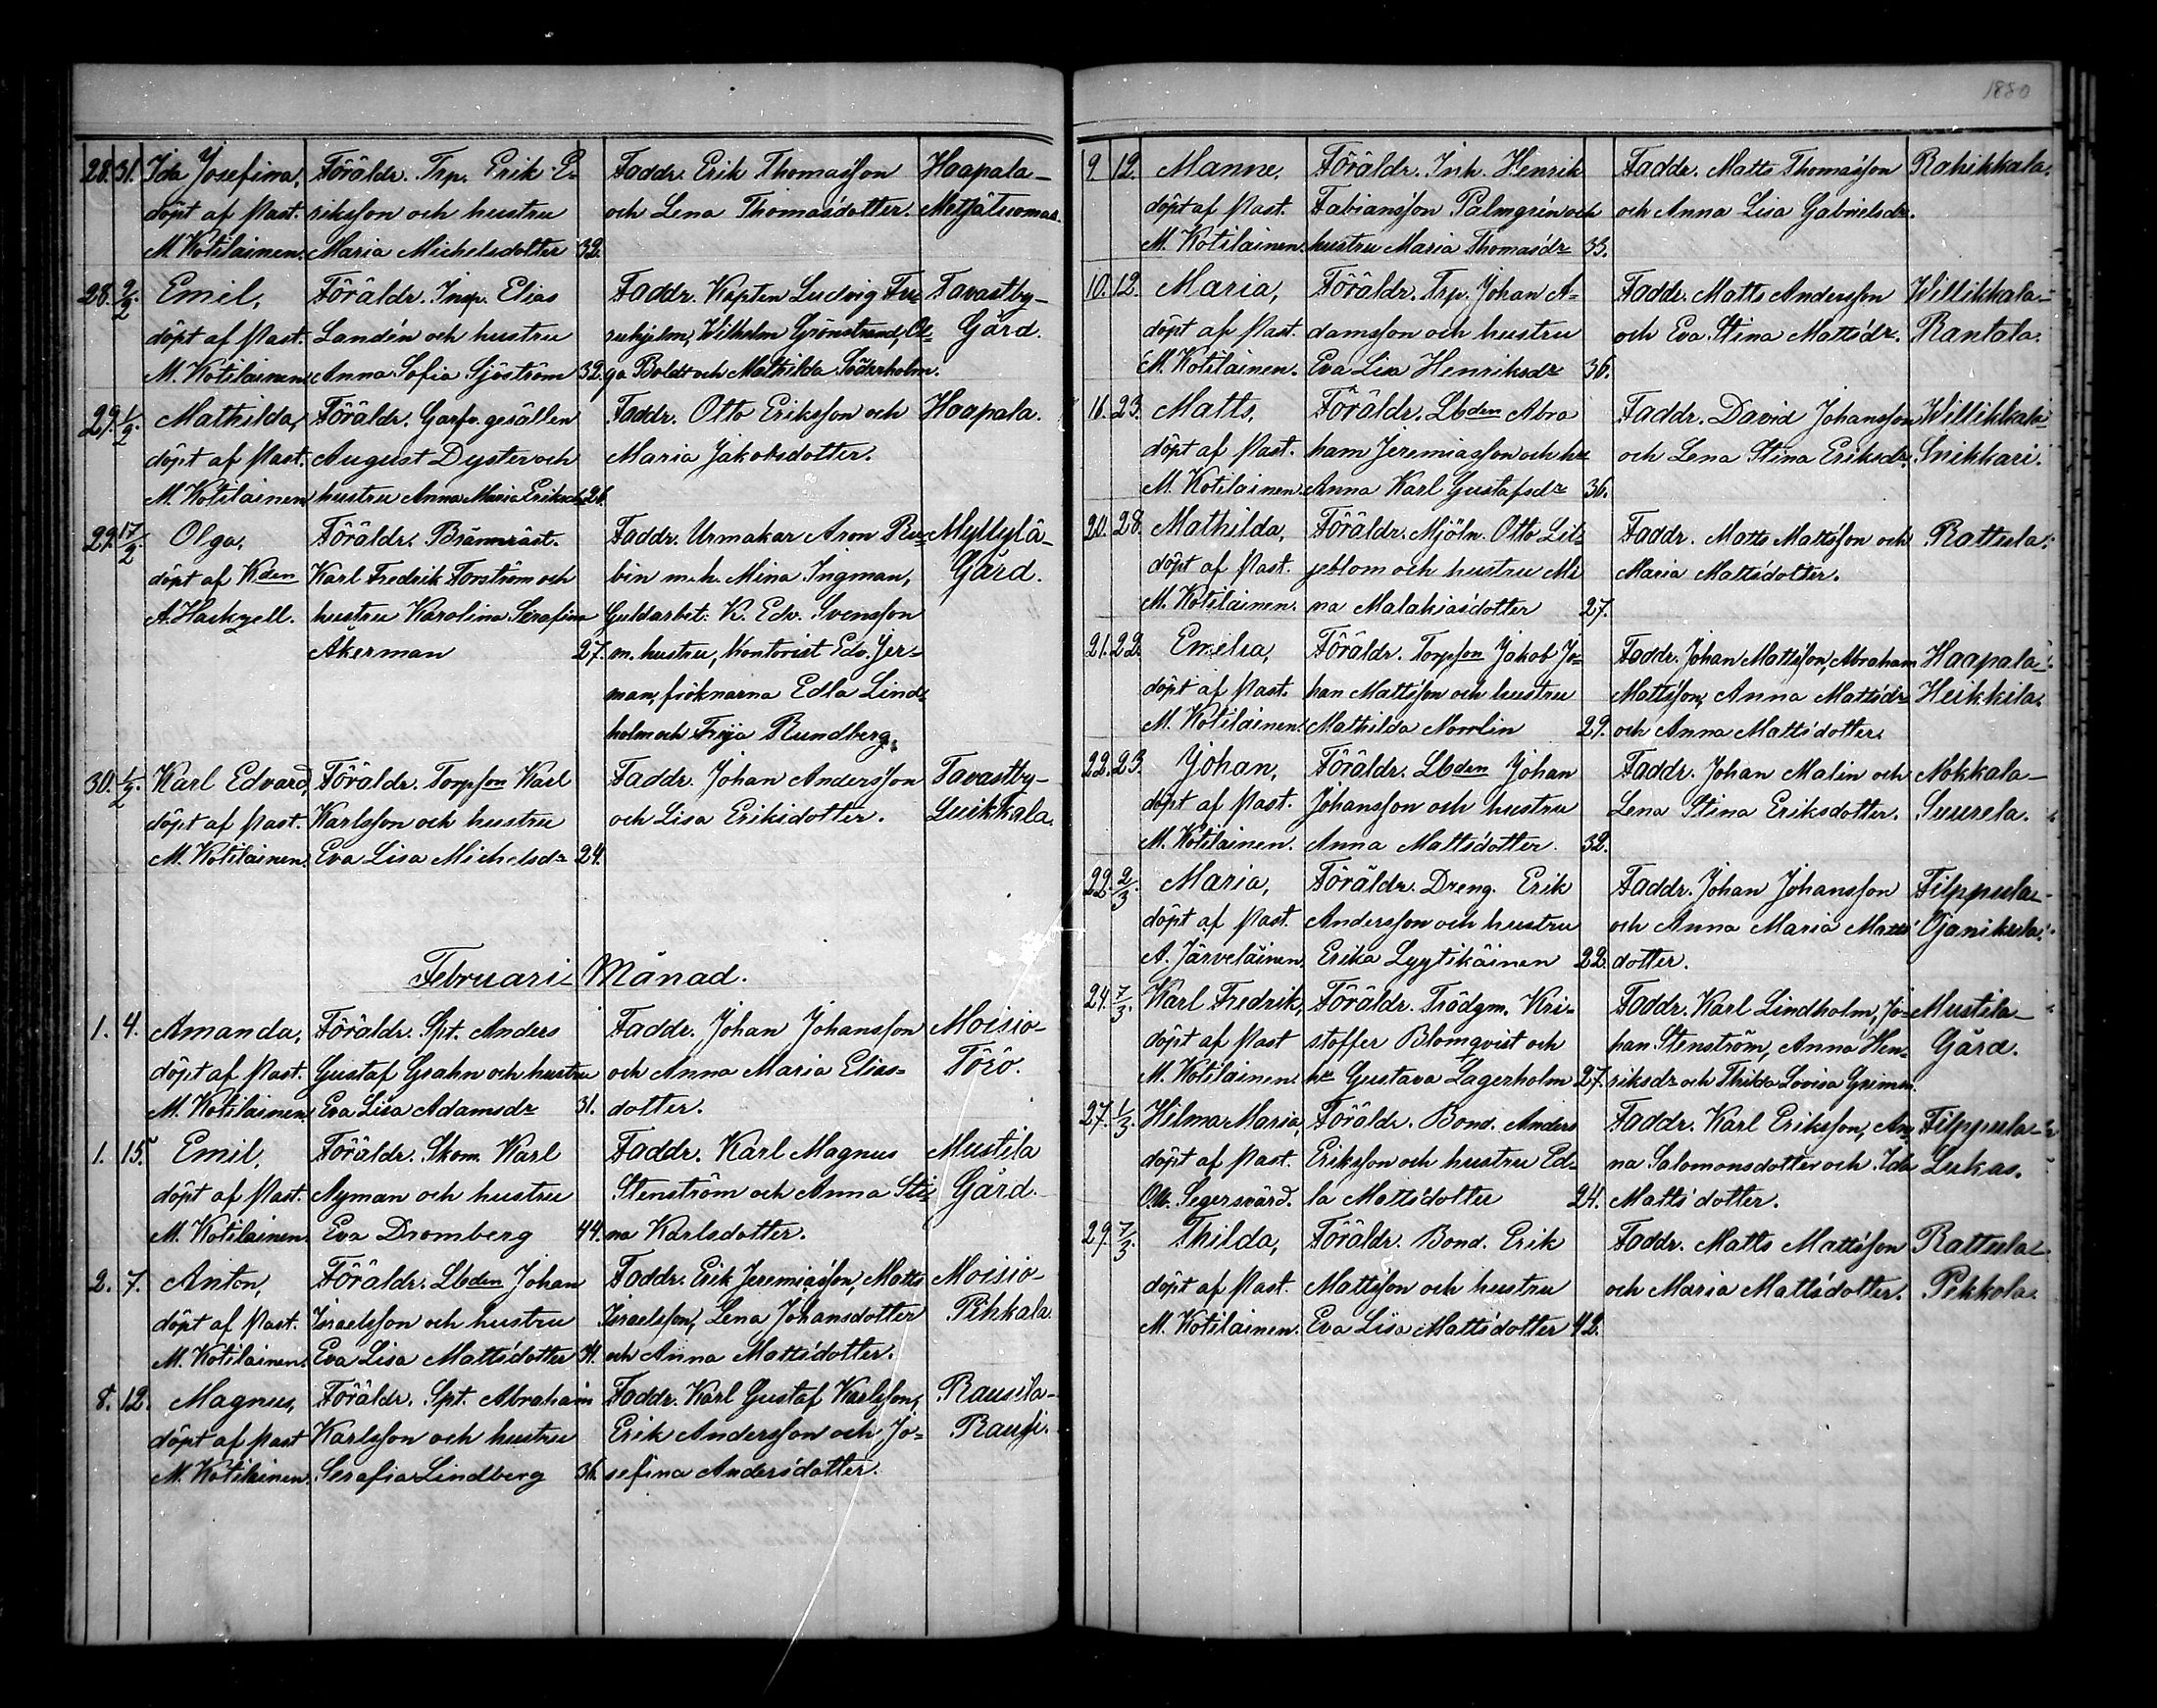 28. 31. Ida Josefina, Föräldr. Trp. Erik E- Faddr. Erik Thomasson Haapala-
döpt af Past. riksson och hustru och Lena Thomasdotter. Metsätuomas.
M. Kotilainen. Maria Michelsdotter 32.
28. 2/2. Emil, Föräldr. Insp. Elias Faddr. Kapten Ludvig Fu- Tavastby-
döpt af Past. Landén och hustru ruhjelm, Wilhelm Grönstrand, Ol- Gård.
M. Kotilainen Anna Sofia Sjöström 32. ga Boldt och Mathilda Söderholm.
29. 1/2. Mathilda, Föräldr. Garfv. gesällen Faddr. Otto Eriksson och Haapala.
döpt af Past. August Dyster och Maria Jakobsdotter.
M. Kotilainen hustru Anna Maria Eriksdr 26.
29. 17/2. Olga, Föräldr. Brännmäst. Faddr. Urmakar Aron Ru- Myllylä-
döpt af Kden Karl Fredrik Forström och bin m. h. Mina Ingman, Gård.
A. Hackzell. hustru Karolina Serafina Guldarbet. K. Edv. Svensson
Åkerman 27. m. hustru, Kontorist Edv. Jer-
man, fröknarna Edla Lind-
holm och Freja Rundberg.
30. 1/2. Karl Edvard, Föräldr. Torpson Karl Faddr. Johan Andersson Tavastby-
döpt af Past. Karlsson och hustru och Lisa Eriksdotter. Luikkala.
M. Kotilainen. Eva Lisa Michelsdr 24.
Februari Månad.
1. 4. Amanda, Föräldr. Spt. Anders Faddr. Johan Johansson Moisio-
döpt af Past. Gustaf Grahn och hustru och Anna Maria Elias- Törö.
M. Kotilainen. Eva Lisa Adamsdr 31. dotter.
1. 15. Emil, Föräldr. Skom. Karl Faddr. Karl Magnus Mustila
döpt af Past. Nyman och hustru Stenström och Anna Sti- Gård.
M. Kotilainen. Eva Dromberg 44. na Karlsdotter.
2. 7. Anton, Föräldr. Lbden Johan Faddr. Erik Jeremiasson, Matts Moisio-
döpt af Past. Israelsson och hustru Israelsson, Lena Johansdotter Pihkala.
M. Kotilainen. Eva Lisa Mattsdotter 34. och Anna Mattsdotter.
8. 12. Magnus, Föräldr. Spt. Abraham Faddr. Karl Gustaf Karlsson, Rausila-
döpt af Past Karlsson och hustru Erik Andersson och Jo- Rausi.
M. Kotilainen. Serafia Lindberg 36. sefina Andersdotter.
1880
9 12. Manne, Föräldr. Inh. Henrik Faddr. Matts Thomasson Rahikkala.
döpt af Past. Fabiansson Palmgrén och och Anna Lisa Gabrielsdr.
M. Kotilainen. hustru Maria Thomasdr 33.
10. 12. Maria, Föräldr. Trp. Johan A- Faddr. Matts Andersson Willikkala-
döpt af Past. damsson och hustru och Eva Stina Mattsdr. Rantala.
M. Kotilainen. Eva Lisa Henriksdr 36.
16. 23. Matts, Föräldr. Lbden Abra Faddr. David Johansson Willikkala-
döpt af Past. ham Jeremiasson och hu och Lena Stina Eriksdr. Snikkari.
M. Kotilainen. Anna Karl Gustafsdr 36.
20. 28. Mathilda, Föräldr. Mjöln. Otto Lil- Faddr. Matts Mattsson och Rattula.
döpt af Past. jeblom och hustru Mi Maria Mattsdotter.
M. Kotilainen. na Malakiasdotter 27.
21. 22. Emelia, Föräldr. Torpson Jakob Jo- Faddr. Johan Mattsson, Abraham Haapala-
döpt af Past. han Mattsson och hustru Mattsson, Anna Mattsdr Heikkilä.
M. Kotilainen. Mathilda Norrlin 29. och Anna Mattsdotter.
22. 23. Johan, Föräldr. Lbden Johan Faddr. Johan Malin och Nokkala-
döpt af Past. Johansson och hustru Lena Stina Eriksdotter. Suurela.
M. Kotilainen. Anna Mattsdotter. 32.
22. 2/3. Maria, Föräldr. Dreng. Erik Faddr. Johan Johansson Filppula-
döpt af Past. Andersson och hustru och Anna Maria Matts Ojanikula.
A. Järveläinen. Erika Lyytikäinen 22. dotter.
24. 7/3. Karl Fredrik, Föräldr. Trädgm. Kri- Faddr. Karl Lindholm, Jo- Mustila-
döpt af Past stoffer Blomqvist och han Stenström, Anna Hen- Gård.
M. Kotilainen. hu Gustava Lagerholm 27. riksdr och Thilda Lovisa Grimm.
27. 1/3. Hilma Maria, Föräldr. Bond. Anders Faddr. Karl Eriksson, An- Filppula-
döpt af Past. Eriksson och hustru Ed- na Salomonsdotter och Ida Lukas.
O. W. Segersvärd. la Mattsdotter 24. Mattsdotter.
29. 7/3. Thilda, Föräldr. Bond. Erik Faddr. Matts Mattsson Rattula-
döpt af Past. Mattsson och hustru och Maria Mattsdotter. Pekkola.
M. Kotilainen. Eva Lisa Mattsdotter 42.